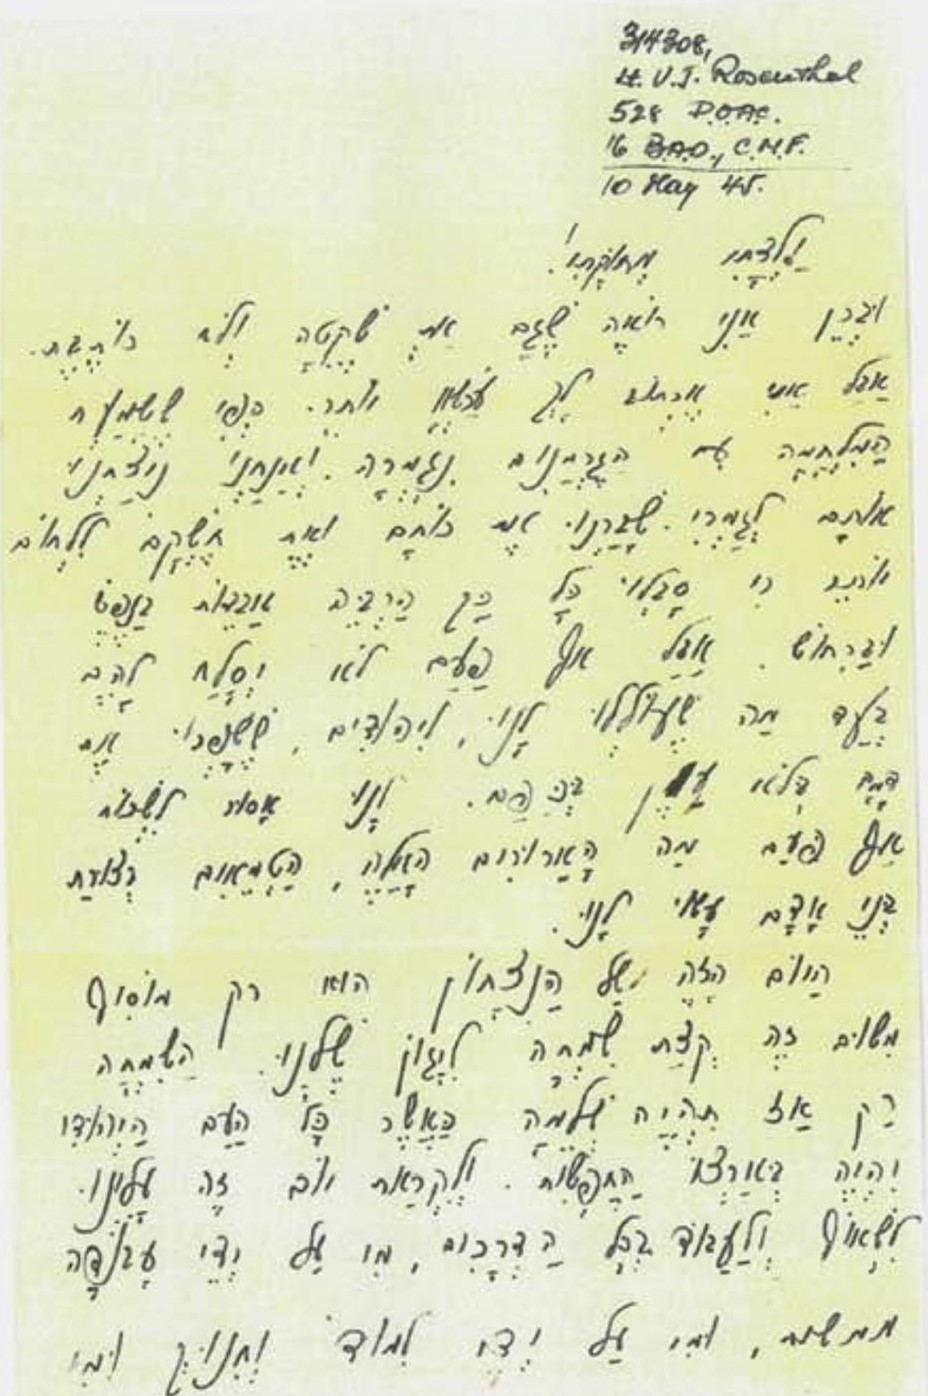 314308,
Lt. V.J. Rosenthal
528
16 B.A.O., C.M.F.
10 May 45.
אני רואה שגם את שקטה ולא כותבת.
אבל אני לך עכשיו יותר. כפי ששמעת
המלחמה עם הגרמנים נגמרה. ואנחנו ניצחנו
אותם לגמרי. שברנו את כוחם ואת חשקם ללחום
יותר כי סבלו כל כך הרבה אבדות בנפש
וברכוש. אבל אף פעם לא יסלח להם
בעד מה שעוללו לנו, ליהודים, ששפכו את
דמם בלא עוון בכפם. ולנו אסור לשכוח
אף פעם מה הארורים האלה, הטמאים בצורת
בני אדם עשו לנו.
היום הזה של הנצחון הוא רק מוסיף
משום זה קצת שמחה ליגון שלנו. השמחה
רק אז תהיה שלמה כאשר כל העם היהודי
יהיה בארצו החפשית. ולקראת יום זה עלינו
לשאוף ולעבוד בכל הדרכים, מי על ידי עבודה
ממשית, ומי על ידי למוד וחנוך ומי